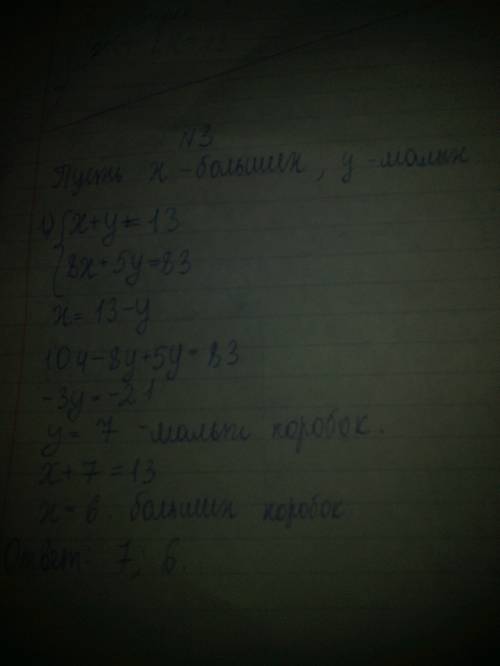 N3
Пусть x - больших, y - малых
1) { x + y = 13
{ 8x + 5y = 83
x = 13 - y
104 - 8y + 5y = 83
-3y = -21
y = 7 - малых коробок.
x + 7 = 13
x = 6. больших коробок
Ответ: 7; 6.